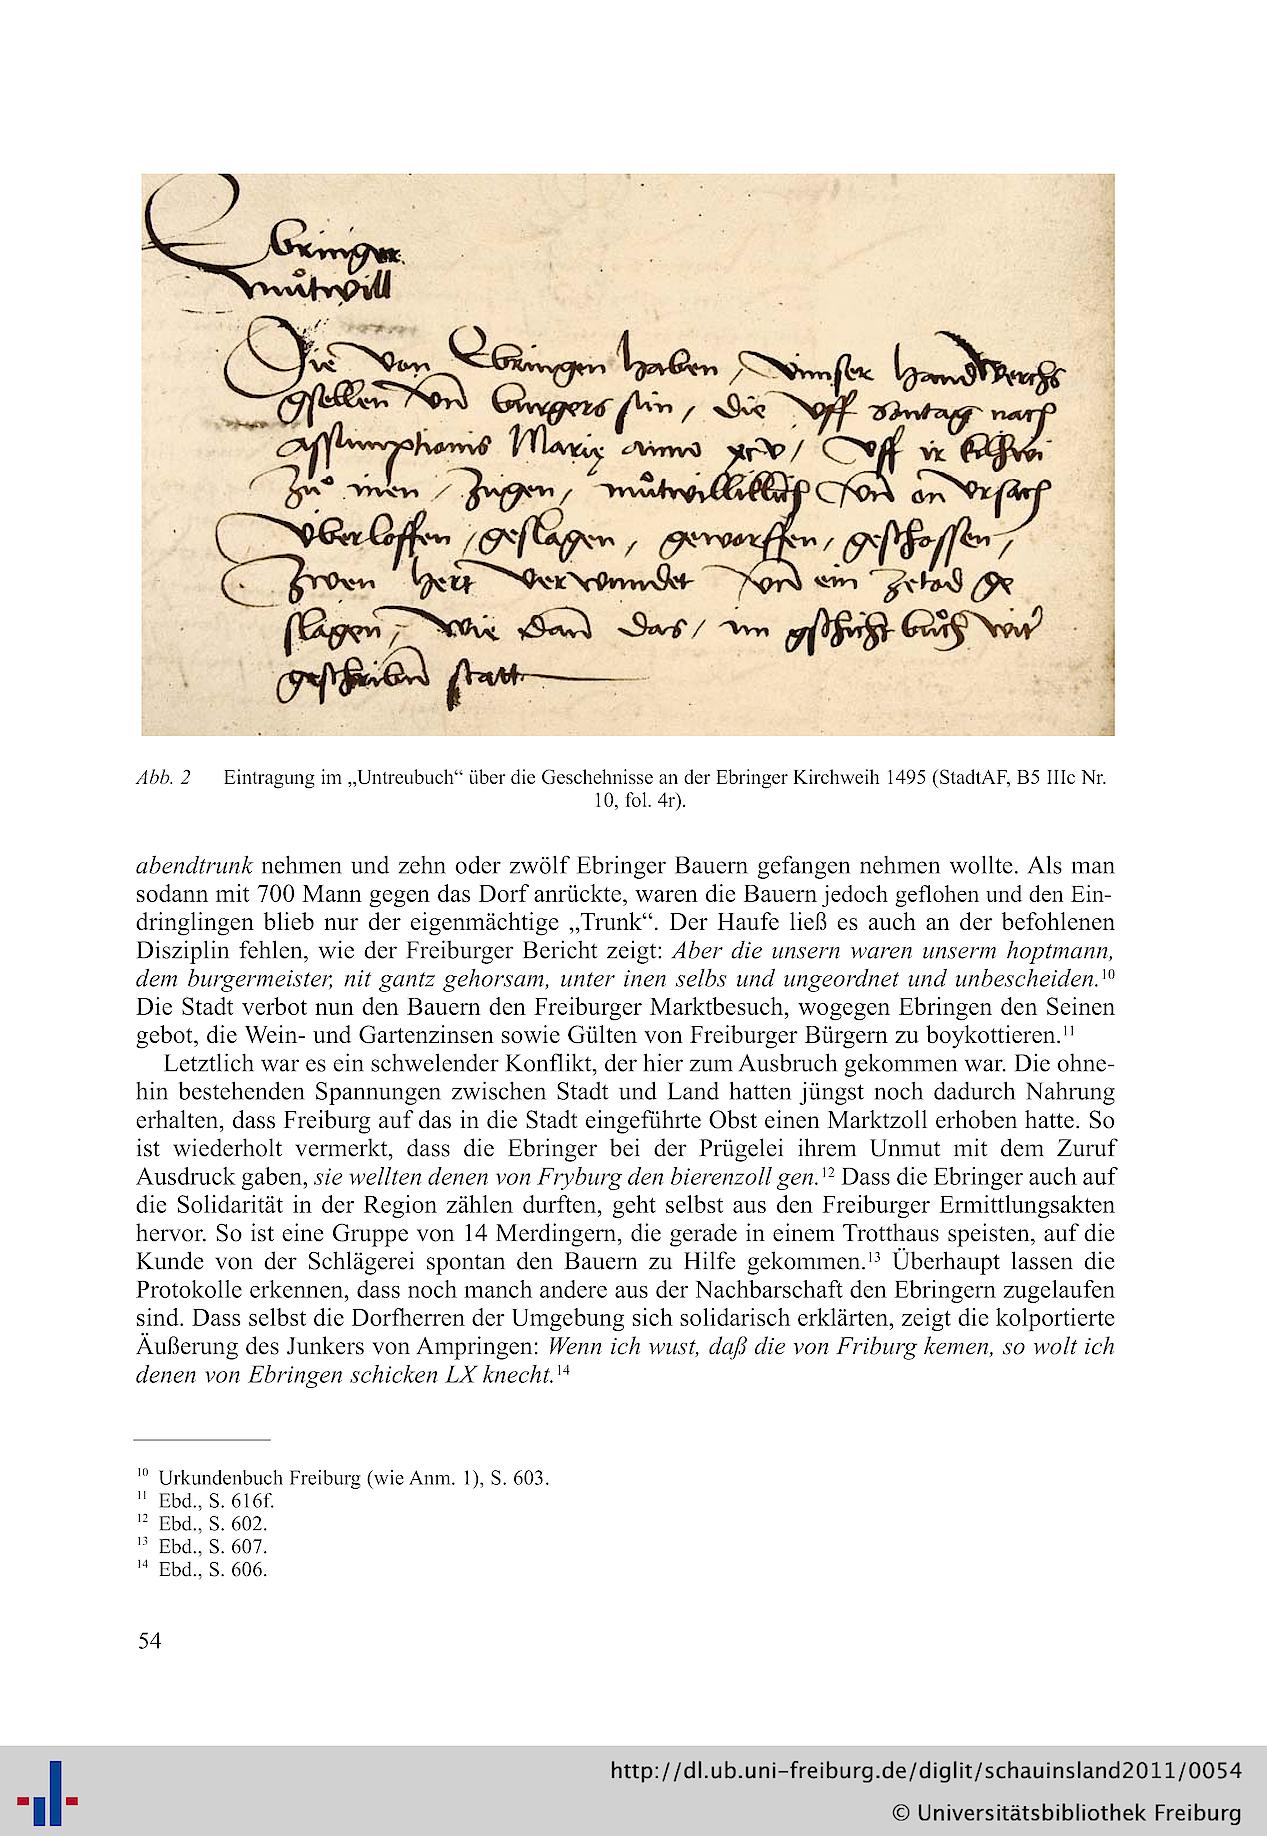 Ebringer
můtwill
Die von Ebringen haben / unnser handwerchs
gsellen vnd burgers sün / die vff Sontag nach
assumptionis Marie anno xcv / vff ir kilchwi
zů inen / zugen / můtwilliklich vnd on vrsach
vberloffen / geslagen / geworffen / geschossen /
zwen hert verwundet vnd ein zetod ge
slagen / wie dan das / im gschicht bůch wit
geschriben statt
Abb. 2 Eintragung im „Untreubuch“ über die Geschehnisse an der Ebringer Kirchweih 1495 (StadtAF, B5 IIIc Nr.
10, fol. 4r).
abendtrunk nehmen und zehn oder zwölf Ebringer Bauern gefangen nehmen wollte. Als man
sodann mit 700 Mann gegen das Dorf anrückte, waren die Bauern jedoch geflohen und den Ein-
dringlingen blieb nur der eigenmächtige „Trunk“. Der Haufe ließ es auch an der befohlenen
Disziplin fehlen, wie der Freiburger Bericht zeigt: Aber die unsern waren unserm hoptmann,
dem burgermeister, nit gantz gehorsam, unter inen selbs und ungeordnet und unbescheiden.¹⁰
Die Stadt verbot nun den Bauern den Freiburger Marktbesuch, wogegen Ebringen den Seinen
gebot, die Wein- und Gartenzinsen sowie Gülten von Freiburger Bürgern zu boykottieren.¹¹
Letztlich war es ein schwelender Konflikt, der hier zum Ausbruch gekommen war. Die ohne-
hin bestehenden Spannungen zwischen Stadt und Land hatten jüngst noch dadurch Nahrung
erhalten, dass Freiburg auf das in die Stadt eingeführte Obst einen Marktzoll erhoben hatte. So
ist wiederholt vermerkt, dass die Ebringer bei der Prügelei ihrem Unmut mit dem Zuruf
Ausdruck gaben, sie wellten denen von Fryburg den bierenzoll gen.¹² Dass die Ebringer auch auf
die Solidarität in der Region zählen durften, geht selbst aus den Freiburger Ermittlungsakten
hervor. So ist eine Gruppe von 14 Merdingern, die gerade in einem Trotthaus speisten, auf die
Kunde von der Schlägerei spontan den Bauern zu Hilfe gekommen.¹³ Überhaupt lassen die
Protokolle erkennen, dass noch manch andere aus der Nachbarschaft den Ebringern zugelaufen
sind. Dass selbst die Dorfherren der Umgebung sich solidarisch erklärten, zeigt die kolportierte
Äußerung des Junkers von Ampringen: Wenn ich wust, daß die von Friburg kemen, so wolt ich
denen von Ebringen schicken LX knecht.¹⁴
¹⁰ Urkundenbuch Freiburg (wie Anm. 1), S. 603.
¹¹ Ebd., S. 616f.
¹² Ebd., S. 602.
¹³ Ebd., S. 607.
¹⁴ Ebd., S. 606.
54
http://dl.ub.uni-freiburg.de/diglit/schauinsland2011/0054
© Universitätsbibliothek Freiburg